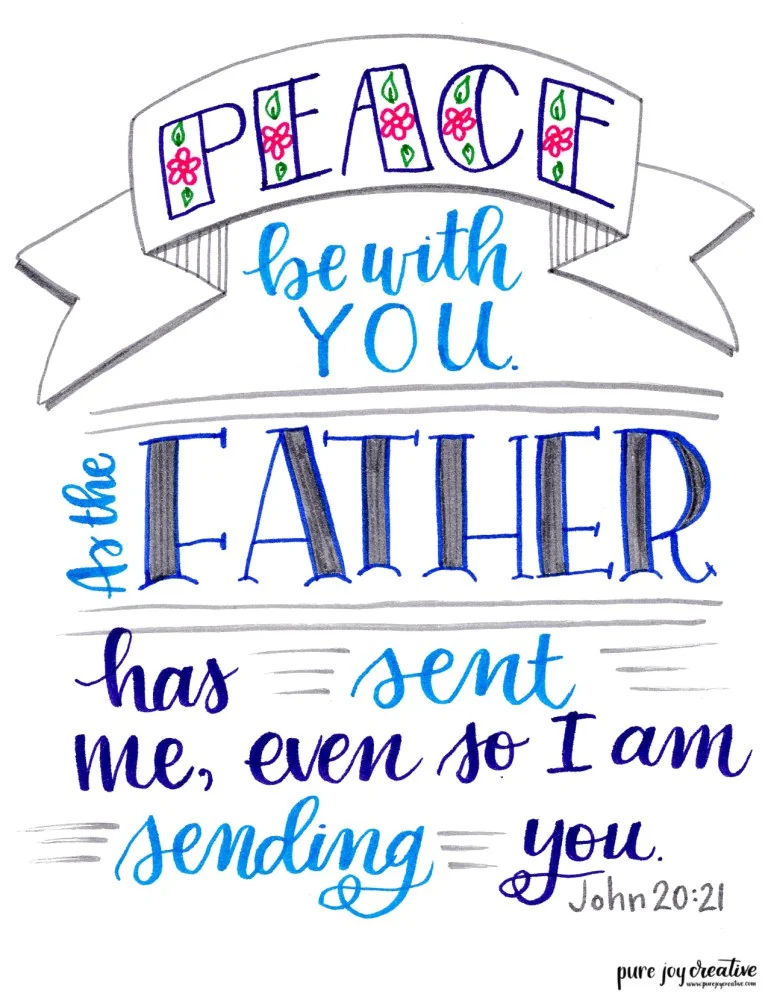 PEACE
be with
YOU.
As the
FATHER
has sent
me, even so I am
sending you.
John 20:21
pure joy creative
www.purejoycreative.com